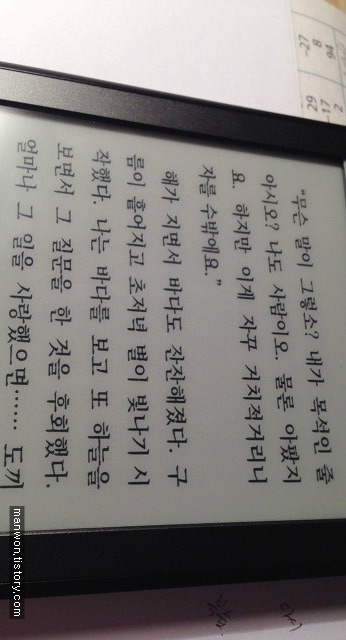 “무슨 말이 그렇소? 내가 목석인 줄
아시오? 나도 사람이오. 물론 아팠지
요. 하지만 이게 자꾸 거치적거리니
자를 수밖에요.”
해가 지면서 바다도 잔잔해졌다. 구
름이 흩어지고 초저녁 별이 빛나기 시
작했다. 나는 바다를 보고 또 하늘을
보면서 그 질문을 한 것을 후회했다.
얼마나 그 일을 사랑했으면…… 도끼
-27
8
94
29
-17
2
manwon.tistory.com